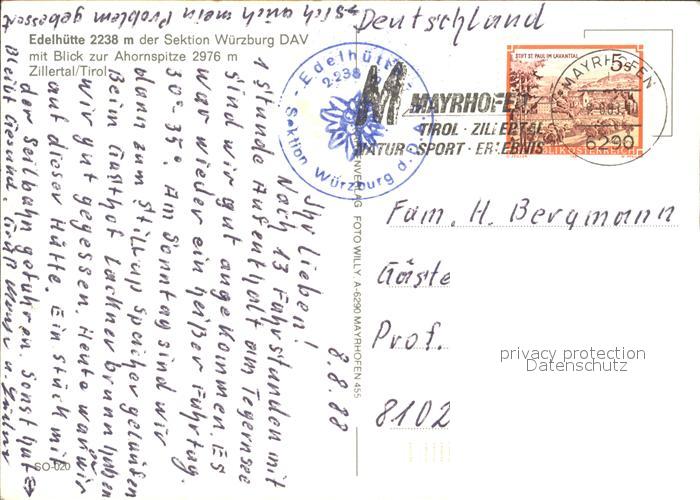 Edelhütte 2238 m der Sektion Würzburg DAV
mit Blick zur Ahornspitze 2976 m
Zillertal/Tirol
8.8.88
Ihr Lieben!
Nach 13 Fahrstunden mit
1 Stunde Aufenthalt am Tegernsee
sind wir gut angekommen. Es
war wieder ein heißer Fahrtag.
30-35°. Am Sonntag sind wir
dann zum Stillup Speicher gelaufen
Beim Gasthof Lacknerbrunn haben
wir gut gegessen. Heute waren wir
auf dieser Hütte. Ein Stück mit
der Seilbahn gefahren. Sonst hat
sich auch mein Problem gebessert
Bleibt Gesund.
SO-020
Edelhütte
2238
Sektion Würzburg d. DAV
VERLAG FOTO WILLY, A-6290 MAYRHOFEN 455
Deutschland
STIFT ST. PAUL IM LAVANTTAL
5
REPUBLIK ÖSTERREICH
MAYRHOFEN
6290
M MAYRHOFEN
TIROL · ZILLERTAL
NATUR · SPORT · ERLEBNIS
Fam. H. Bergmann
Gäste
Prof.
8102
privacy protection
Datenschutz